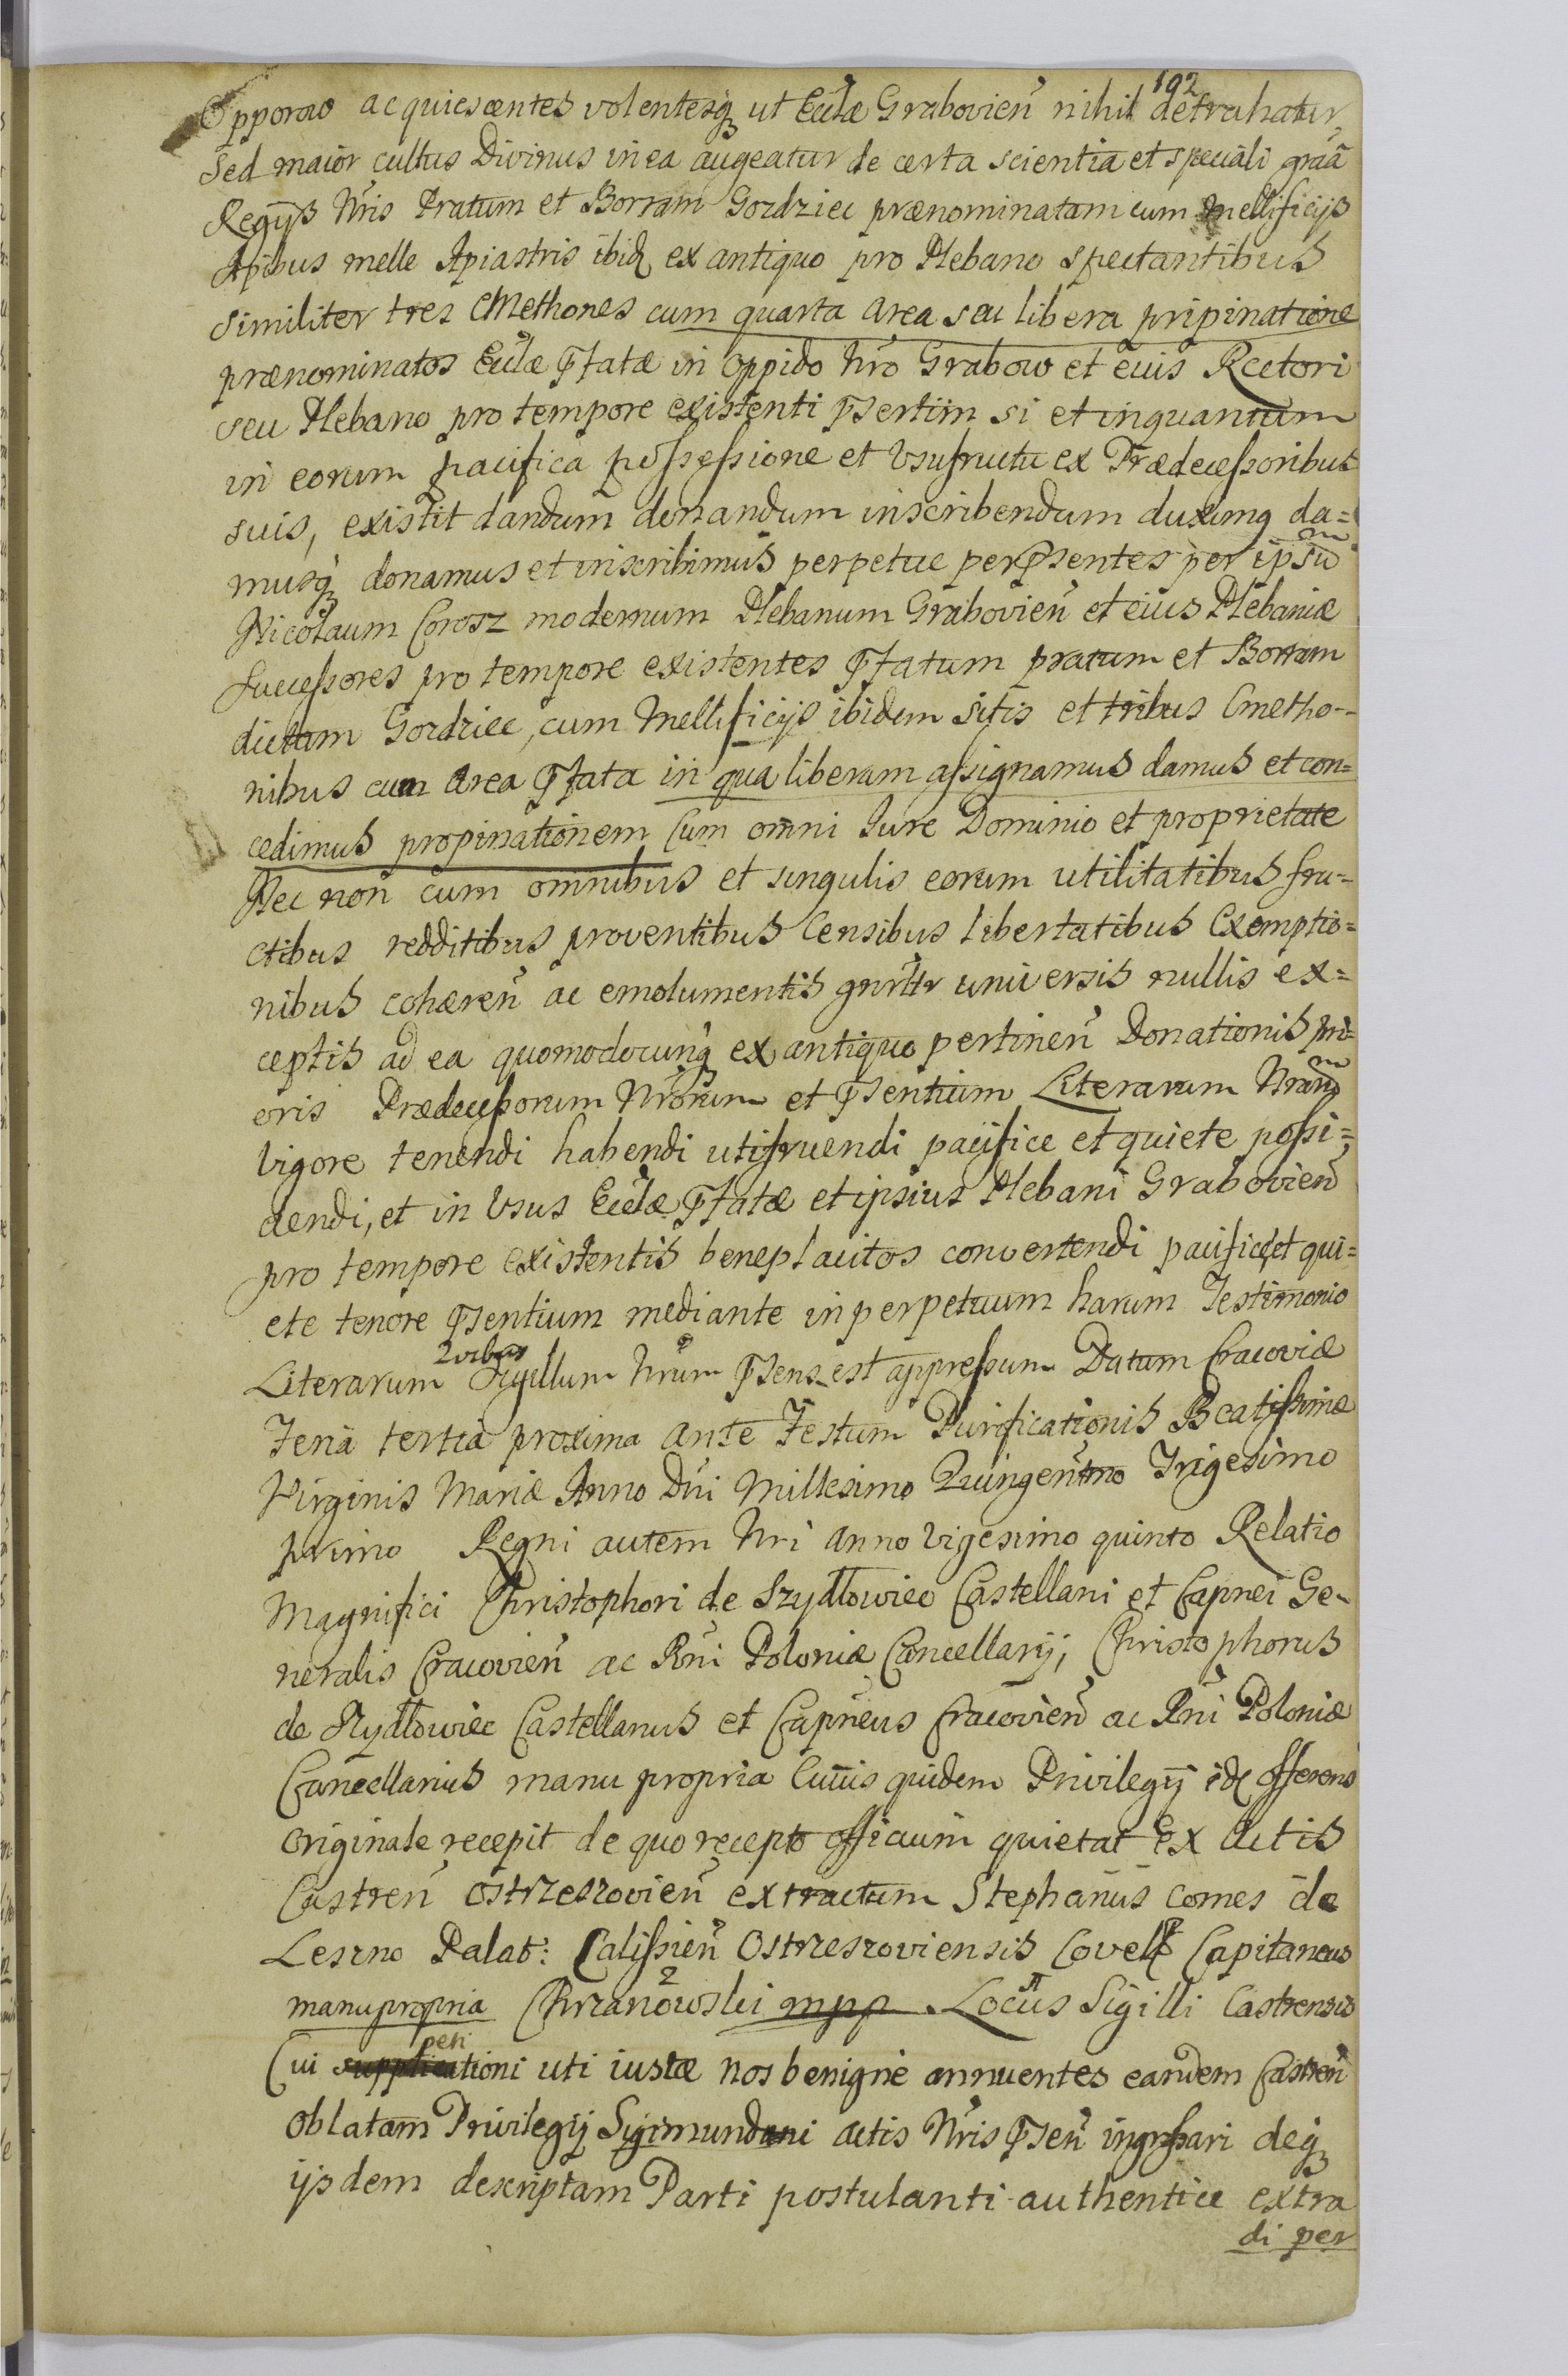 192
acquiescentes volentesq̃ ut Eccłæ Grabovień nihil detrahatur
Sed maior cultus Divinus in ea augeatur de certa scientia et speciali grãa
Regÿs Nr̃is Pratum et Borram Gordziec prænominatam cum Mellificÿs
Apibus melle Apiastris ibid ex antiquo pro Plebano spectantibus
similiter tres CMethones cum quarta area seu libera pripinatione
prænominatos Eccłæ Pfatæ in Oppido Nr̃o Grabow et eius Rectori
seu Plebano pro tempore existenti Psertim si et inquantum
in eorum pacifica possessione et Vsufructu ex Prædecessoribus
suis, existit dandum donandum inscribendum duximq da=
musq̃ donamus et inscribimus perpetue per Psentes per ipsũm
Nicolaum Corosz modernum Plebanum Grabovień et eius Plebaniæ
Successores pro tempore existentes Pfatum pratum et Borram
dictam Gordziec, cum Mellificÿs ibidem sitis et tribus Cmetho-
nibus cum area Pfata in qua liberam assignamus damus et con=
cedimus propinationem Cum omni Iure Dominio et proprietate
Nec non cum omnibus et singulis eorum utilitatibus fru=
ctibus redditibus proventibus Censibus libertatibus Exemptio=
nibus cohæreń ac emolumentis gnrłtr universis nullis ex=
ceptis ad ea quomodocunq̃ ex antiquo pertineń Donationis pri=
oris Prædecessorum Nr̃orum et Psentium Literarum Nrarũm
vigore tenendi habendi utifruendi pacifice et quiete possi=
dendi, et in Vsus Eccłæ Pfatæ et ipsius Plebani Grabovień
pro tempore existentis beneplacitos convertendi pacifice et qui=
ete tenore Psentium mediante in perpetuum harum Testimonio
Literarum Quibus Sigillum Nr̃um Psens est appressum Datum Cracoviæ
Feria tertia proxima ante Festum Purificationis Beatissimæ
Virginis Mariæ Anno Dñi Millesimo Quingentmo Trigesimo
primo Regni autem Nri anno vigesimo quinto Relatio
Magnifici Christophori de Szydłowiec Castellani et Capnei Ge-
neralis Cracovień ac Rñi Poloniæ Cancellarÿ, Christophorus
de Szydłowiec Castellanus et Capneus Cracovień ac Rñi Poloniæ
Cancellarius manu propria Cuius quidem Privilegÿ id offerens
Originale recepit de quo recepto officium quietat Ex Actis
Castreń Ostrzeszovień extractum Stephanus Comes de
Leszno Palat: Calissień Ostrzeszoviensis Covelg Capitaneus
manupropria Chrzanowski mpp. Locus Sigilli Castrensis
Cui petitioni uti iustæ nos benigne annuentes eandem Castreń
Oblatam Privilegÿ Sigismundani actis Nr̃is Pseń ingrssari deq̃
ijsdem descriptam Parti postulanti authentice extra
di per